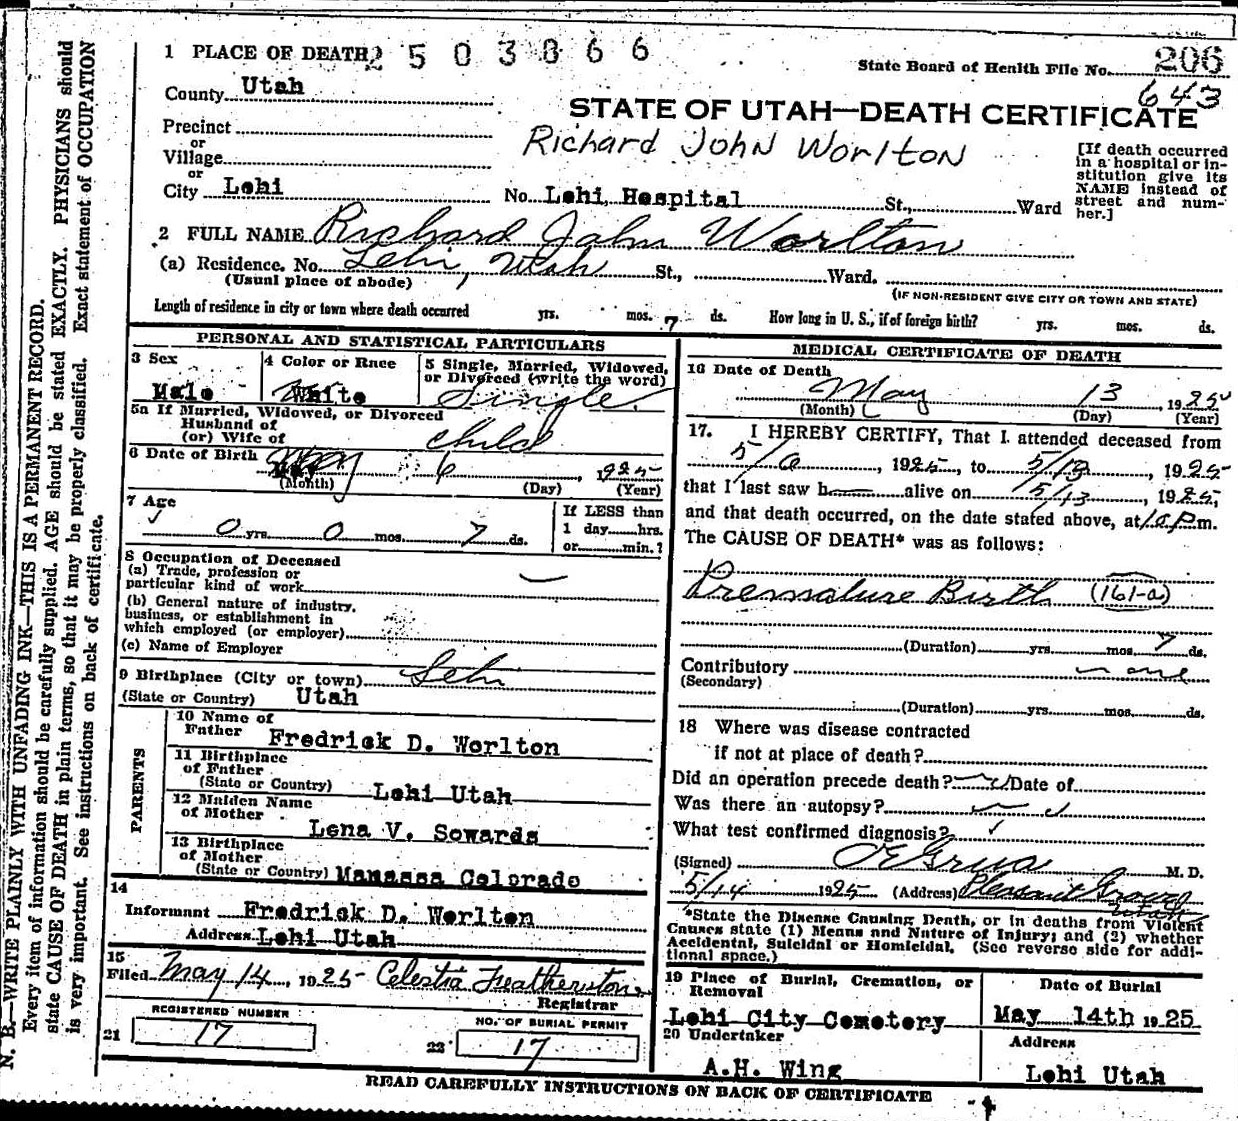 1 PLACE OF DEATH 2503066
State Board of Health File No. 206
643
County Utah
STATE OF UTAH—DEATH CERTIFICATE
Precinct
or
Village
or
City Lehi
Richard John Worlton
[If death occurred
in a hospital or in-
stitution give its
NAME instead of
street and num-
ber.]
No. Lehi Hospital St., Ward
2 FULL NAME Richard John Worlton
(a) Residence. No. Lehi, Utah St., Ward.
(Usual place of abode)
(IF NON-RESIDENT GIVE CITY OR TOWN AND STATE)
Length of residence in city or town where death occurred yrs. mos. 7 ds. How long in U. S., if of foreign birth? yrs. mos. ds.
PERSONAL AND STATISTICAL PARTICULARS
3 Sex
Male
4 Color or Race
White
5 Single, Married, Widowed,
or Divorced (write the word)
Single
5a If Married, Widowed, or Divorced
Husband of
(or) Wife of
child
6 Date of Birth
May 6, 1925
(Month) (Day) (Year)
7 Age
0 yrs. 0 mos. 7 ds.
If LESS than
1 day hrs.
or min.?
8 Occupation of Deceased
(a) Trade, profession or
particular kind of work
(b) General nature of industry,
business, or establishment in
which employed (or employer)
(c) Name of Employer
9 Birthplace (City or town) Lehi
(State or Country) Utah
PARENTS
10 Name of
Father Fredrick D. Worlton
11 Birthplace
of Father
(State or Country) Lehi Utah
12 Maiden Name
of Mother Lena V. Sowards
13 Birthplace
of Mother
(State or Country) Manassa Colorado
14
Informant Fredrick D. Worlton
Address Lehi Utah
15
Filed May 14, 1925 Celestia Featherstone
Registrar
REGISTERED NUMBER
21 17
NO. OF BURIAL PERMIT
22 17
MEDICAL CERTIFICATE OF DEATH
16 Date of Death
May 13, 1925
(Month) (Day) (Year)
17. I HEREBY CERTIFY, That I attended deceased from
5/6, 1925, to 5/13, 1925
that I last saw h alive on 5/13, 1925,
and that death occurred, on the date stated above, at 10 p m.
The CAUSE OF DEATH* was as follows:
Premature Birth (161-a)
(Duration) yrs. mos. 7 ds.
Contributory none
(Secondary)
(Duration) yrs. mos. ds.
18 Where was disease contracted
if not at place of death?
Did an operation precede death? Date of
Was there an autopsy?
What test confirmed diagnosis?
(Signed) M. D.
5/14 1925 (Address) Pleasant Grove
Utah
*State the Disease Causing Death, or in deaths from Violent
Causes state (1) Means and Nature of Injury; and (2) whether
Accidental, Suicidal or Homicidal. (See reverse side for addi-
tional space.)
19 Place of Burial, Cremation, or
Removal
Lehi City Cemetery
Date of Burial
May 14th 1925
20 Undertaker
A.H. Wing
Address
Lehi Utah
READ CAREFULLY INSTRUCTIONS ON BACK OF CERTIFICATE
N. B.—WRITE PLAINLY WITH UNFADING INK—THIS IS A PERMANENT RECORD.
Every item of information should be carefully supplied. AGE should be stated EXACTLY. PHYSICIANS should
state CAUSE OF DEATH in plain terms, so that it may be properly classified. Exact statement of OCCUPATION
is very important. See instructions on back of certificate.